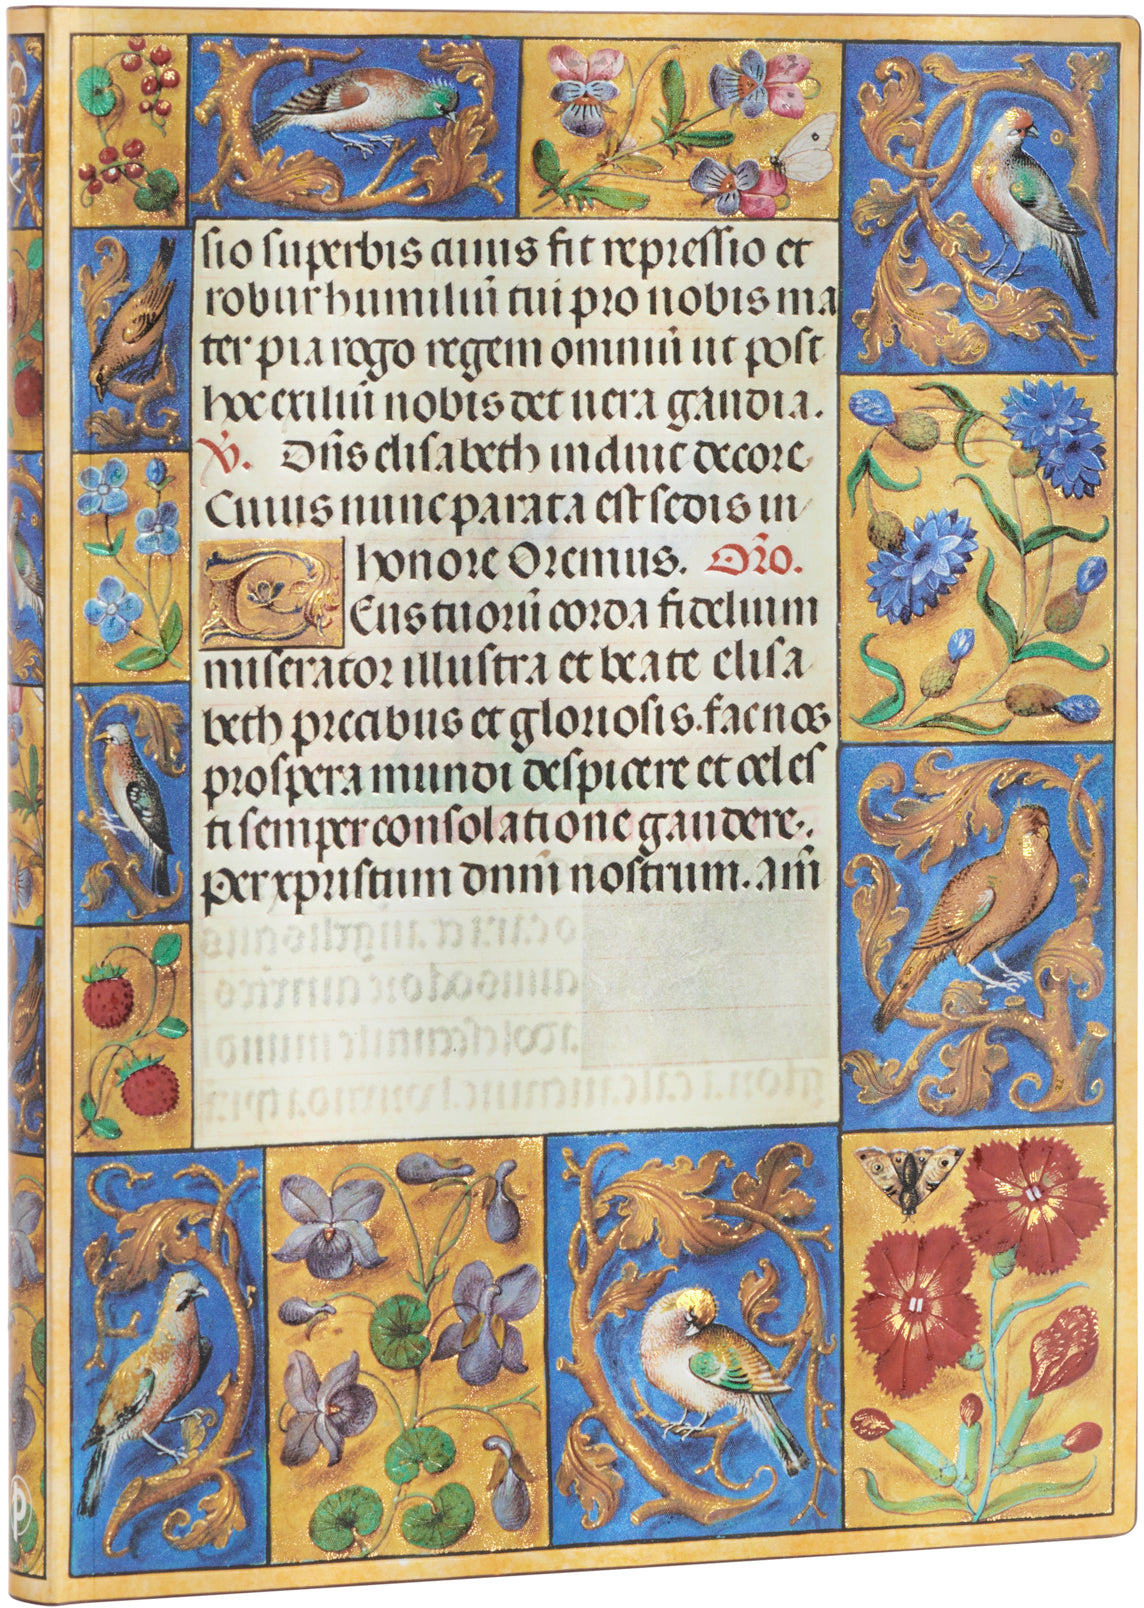 Getty
sio superbis cuius fit repressio et
robur humiliū tui pro nobis ma
ter pia rogo regem omniū ut post
hoc exiliū nobis det uera gaudia.
℣. Dn̄s elisabeth induit decore
Cuius nunc parata est sedis in
honore Oremus. Or̄o.
DEus tuorū corda fidelium
miserator illustra et beate elisa
beth precibus et gloriosis. fac nos
prospera mundi despicere et celes
ti semper consolatione gaudere.
Per xpristum dnm̄ nostrum. Am̄